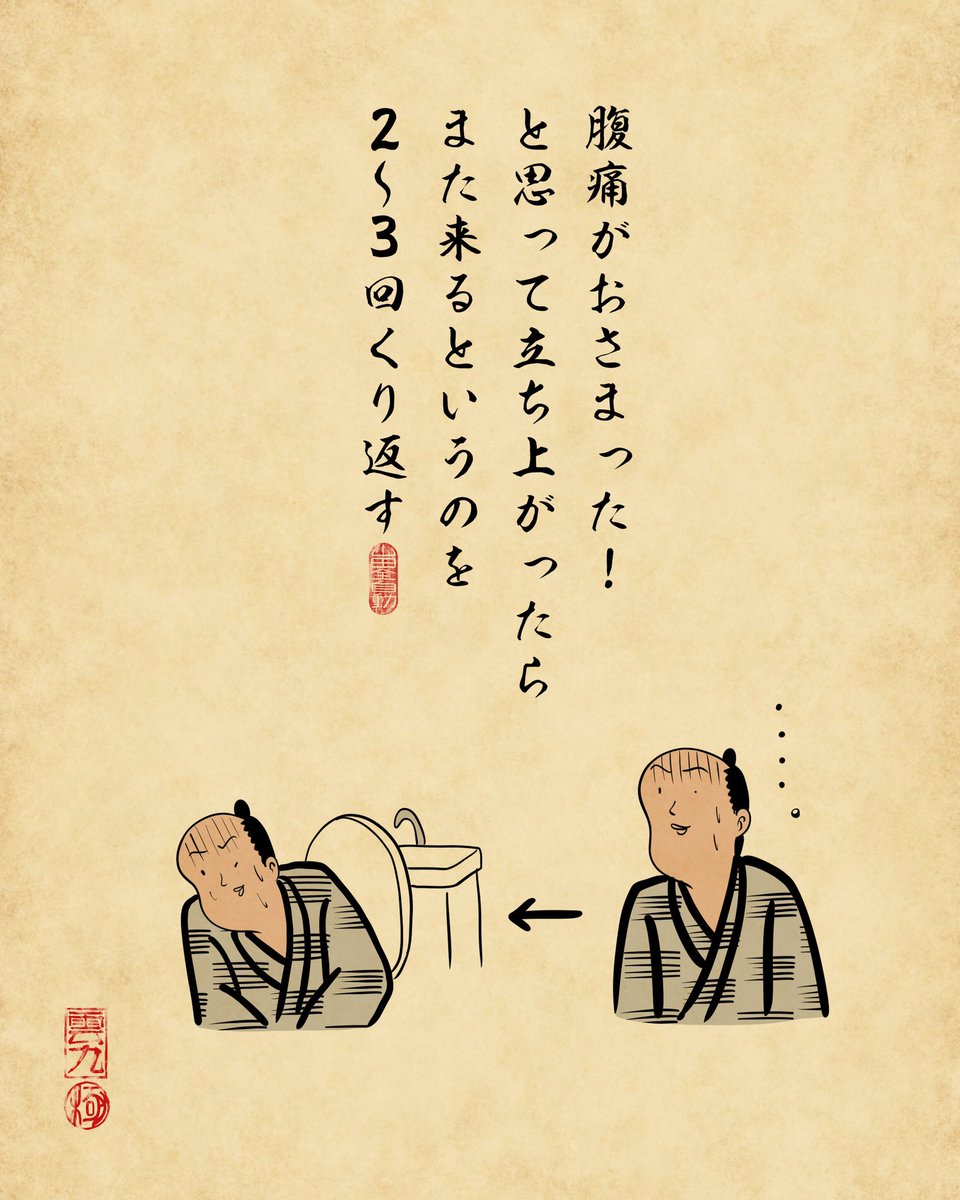 腹痛がおさまった！
と思って立ち上がったら
また来るというのを
2〜3回くり返す